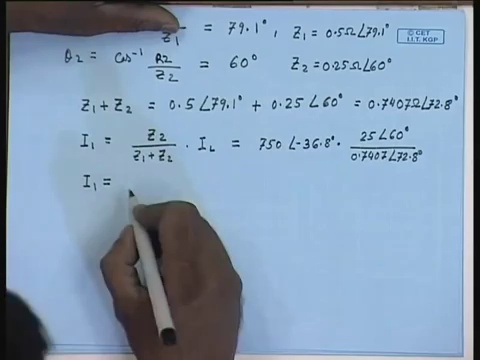 Z1 = 79.1°, Z1 = 0.5Ω∠79.1°
© CET
I.I.T. KGP
θ2 = Cos⁻¹ R2/Z2 = 60° Z2 = 0.25Ω∠60°
Z1 + Z2 = 0.5∠79.1° + 0.25∠60° = 0.7407Ω∠72.8°
I1 = Z2/(Z1+Z2) · IL = 750∠-36.8° · 25∠60°/0.7407∠72.8°
I1 =